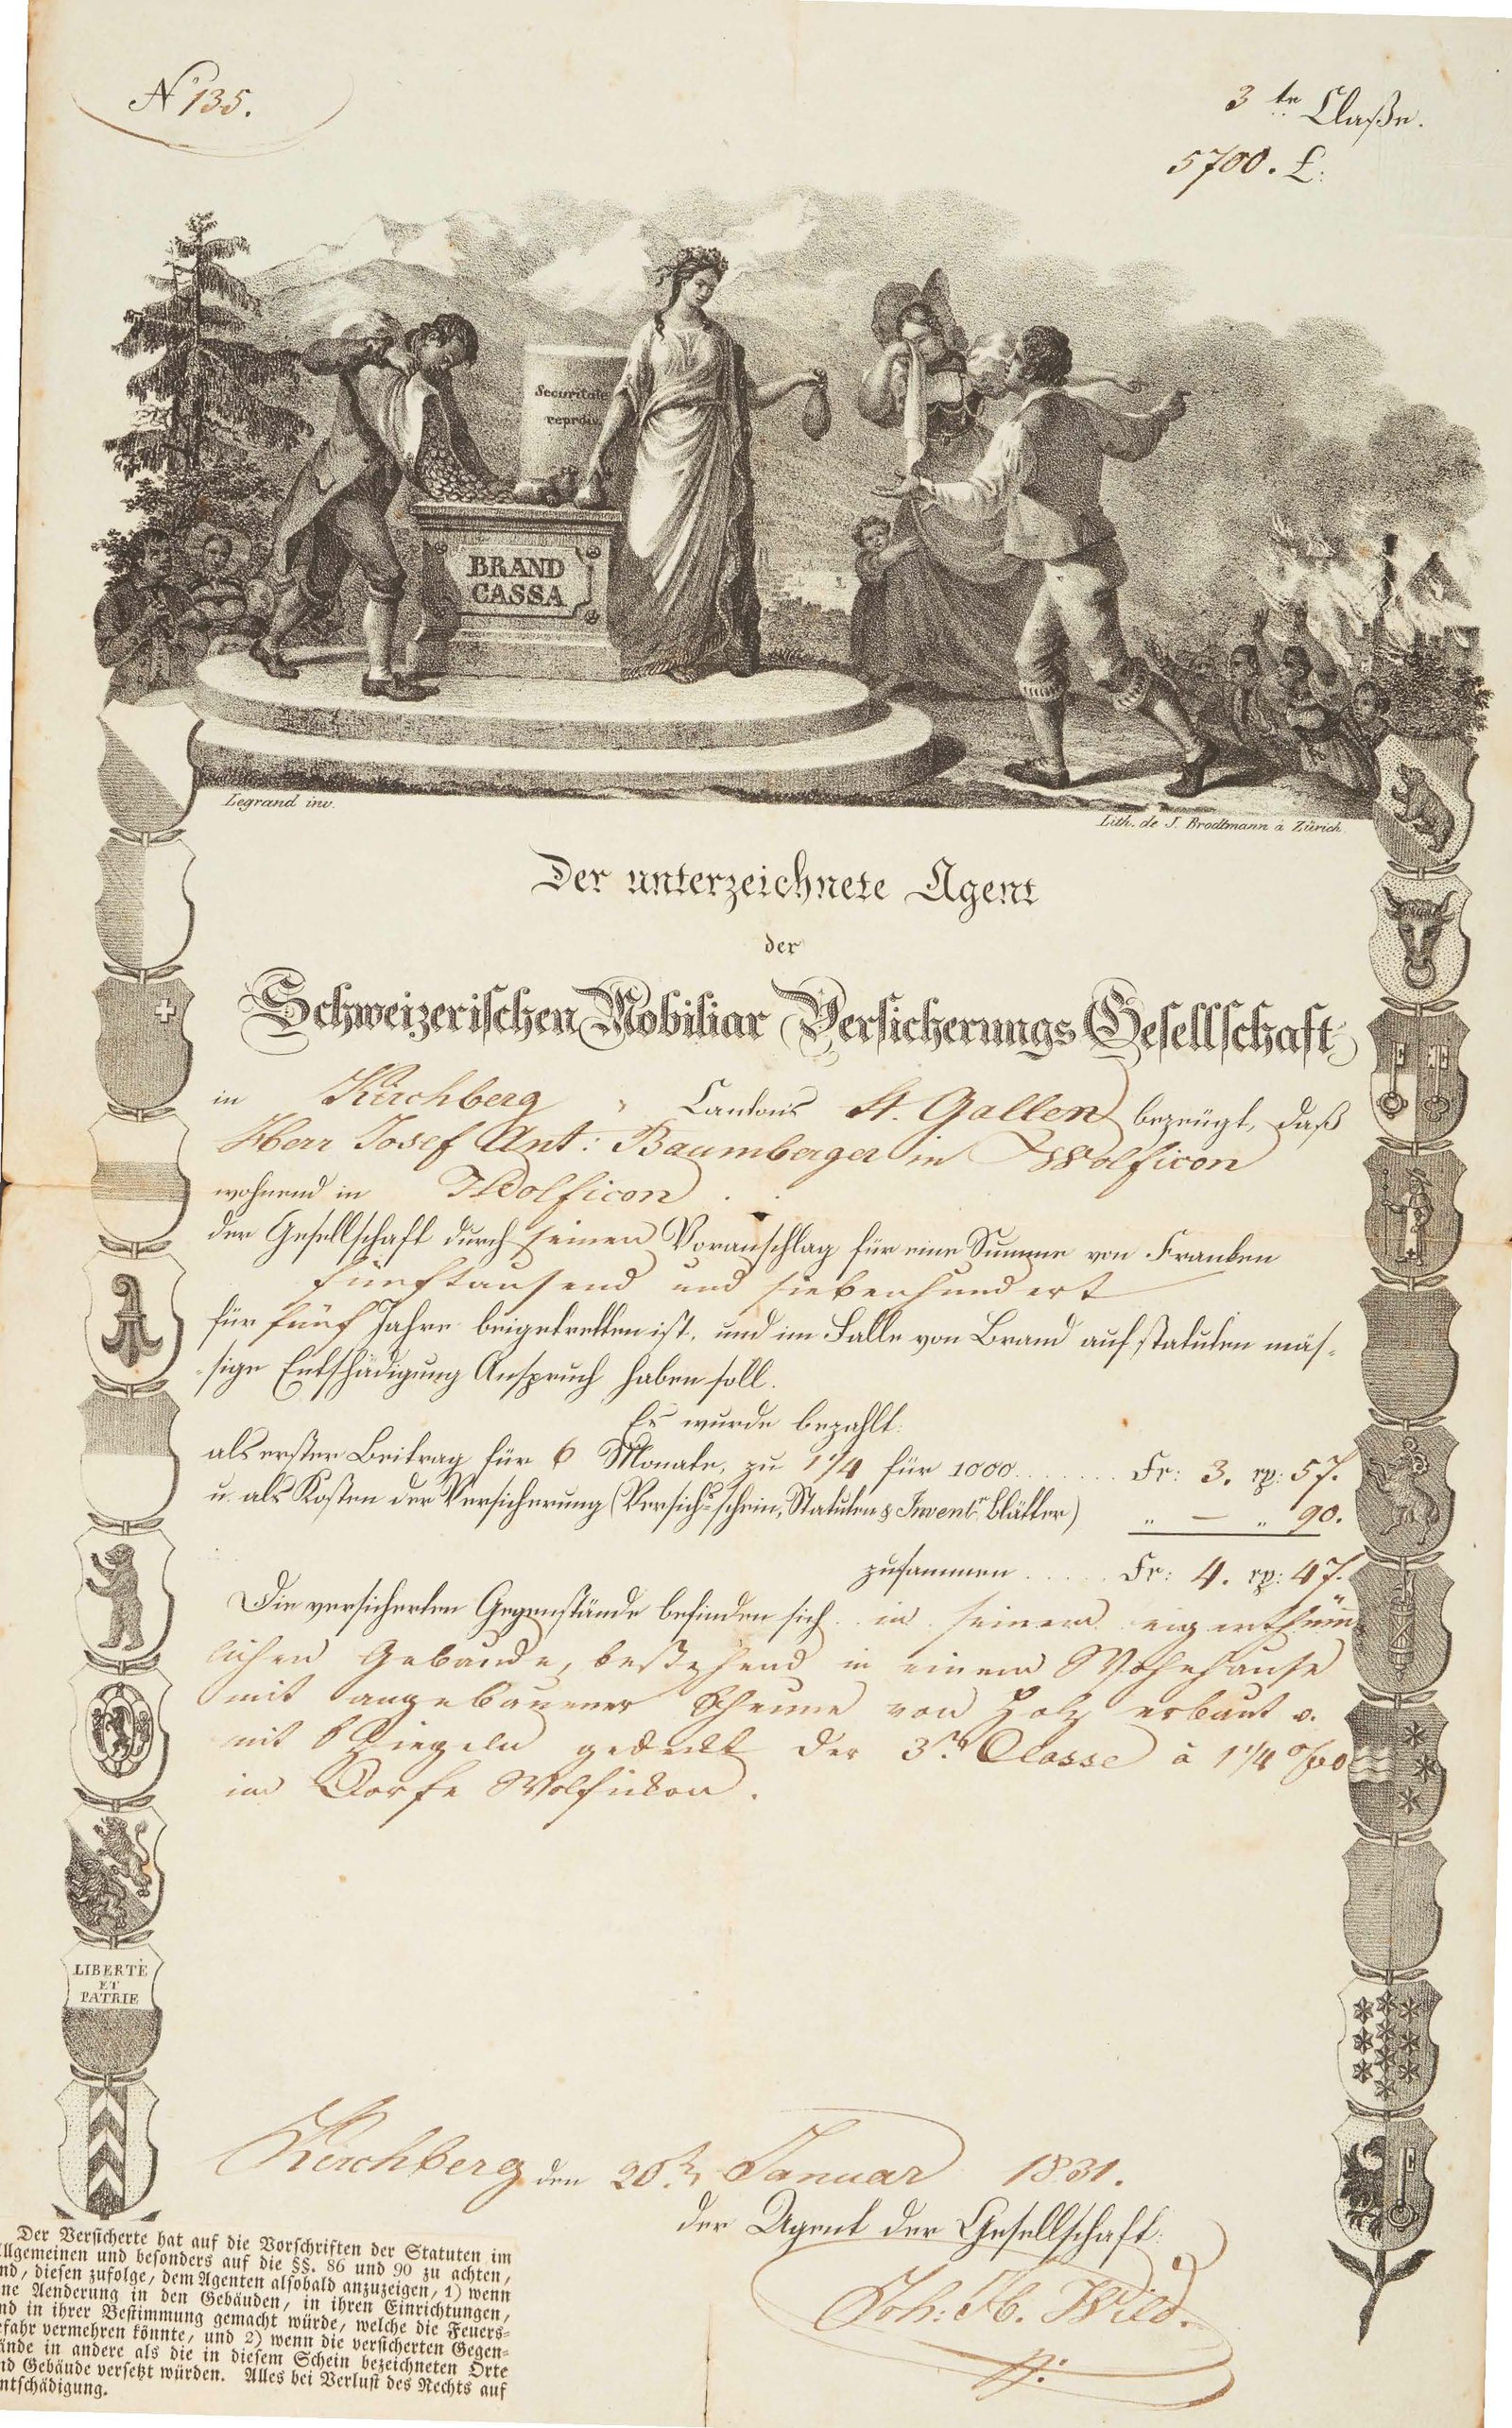 N° 135.
3 te Claße.
5700. £:
Securitate
BRAND
CASSA
Legrand inv.
Lith. de J. Brodtmann à Zürich
Der unterzeichnete Agent
der
Schweizerischen Mobiliar Versicherungs Gesellschaft
in Kirchberg Cantons St. Gallen bezeugt, daß
Herr Josef Ant: Baumberger in Wolficon
wohnend in Wolficon
der Gesellschaft durch seinen Voranschlag für eine Summe von Franken
fünftausend und siebenhundert
für fünf Jahre beigetretten ist, und im Falle von Brand auf statuten mäs-
sige Entschädigung Anspruch haben soll.
Es wurde bezahlt:
als erster Beitrag für 6 Monate, zu 1 1/4 für 1000 . . . . . . . Fr: 3. rp: 57.
u. als Kosten der Versicherung (Versichs schein, Statuten & Inventr blätter) „ — „ 90.
zusammen . . . . . Fr: 4. rp: 47.
Die versicherten Gegenstände befinden sich in seinem eigenthüm
lichen Gebäude, bestehend in einem Wohnhause
mit angebauener Scheune von Holz erbaut u.
mit Ziegeln gedeckt der 3t. Classe à 1 1/4 %00
im Dorfe Wolfickon.
LIBERTÉ
ET
PATRIE
Kirchberg den 20t. Januar 1831.
der Agent der Gesellschaft:
Joh: Wild.
Der Versicherte hat auf die Vorschriften der Statuten im
llgemeinen und besonders auf die §§. 86 und 90 zu achten,
nd, diesen zufolge, dem Agenten alsobald anzuzeigen, 1) wenn
ne Aenderung in den Gebäuden, in ihren Einrichtungen,
nd in ihrer Bestimmung gemacht würde, welche die Feuers-
efahr vermehren könnte, und 2) wenn die versicherten Gegen-
ände in andere als die in diesem Schein bezeichneten Orte
nd Gebäude versetzt würden. Alles bei Verlust des Rechts auf
ntschädigung.